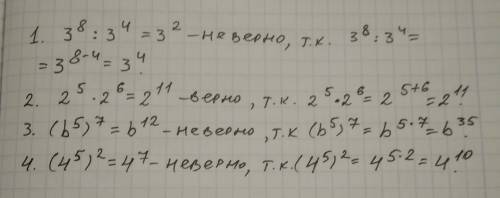 1. 3⁸ : 3⁴ = 3² - неверно, т.к. 3⁸ : 3⁴ =
= 3⁸⁻⁴ = 3⁴.
2. 2⁵ · 2⁶ = 2¹¹ - верно, т.к. 2⁵ · 2⁶ = 2⁵⁺⁶ = 2¹¹.
3. (b⁵)⁷ = b¹² - неверно, т.к (b⁵)⁷ = b⁵·⁷ = b³⁵.
4. (4⁵)² = 4⁷ - неверно, т.к. (4⁵)² = 4⁵·² = 4¹⁰.